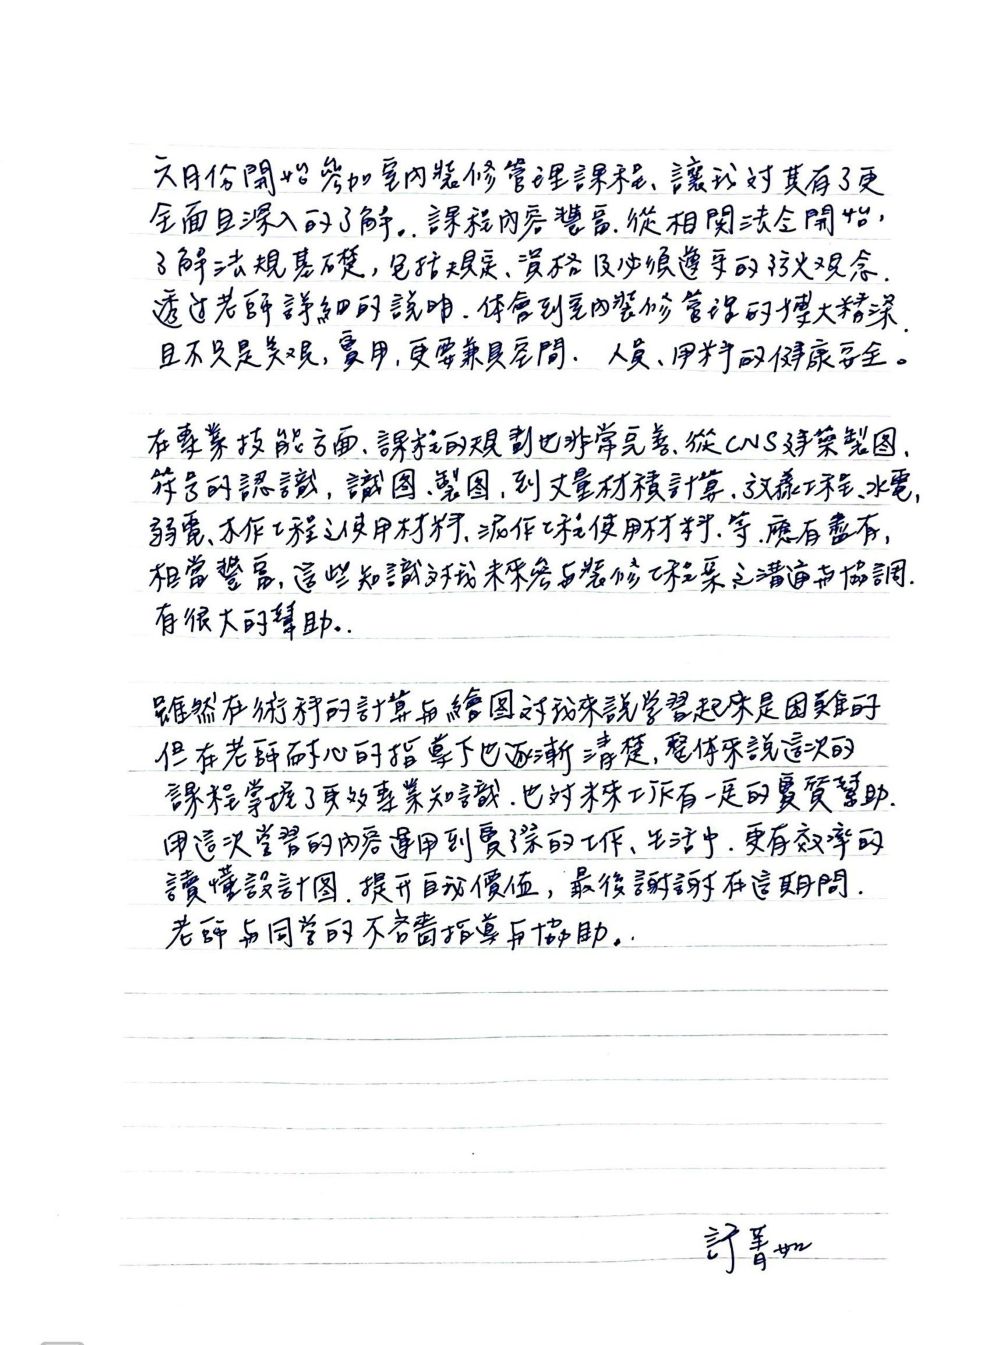 六月份開始參加室內裝修管理課程、讓我对其有了更
全面且深入的了解。.課程內容豐富.從相関法令開始,
了解法規基礎,包括規定、資格及必須遵守的防火观念.
透过老師詳細的說明.体會到室內裝修管理的博大精深.
且不只是美观,實用,更要兼具空間. 人員、用料的健康安全。
在專業技能方面、課程的規劃也非常完善、從CNS建築製图.
符号的認識,識图、製图,到丈量材積計算、放樣工程、水電,
弱電、木作工程之使用材料、泥作工程使用材料.等.應有盡有,
相當豐富,這些知識对我未來參与裝修工程案之溝通与協調.
有很大的幫助。.
雖然在術科的計算与繪图对我來說学習起來是困難的
但在老師耐心的指導下也逐漸清楚,整体來說這次的
課程掌握了更多專業知識.也对未來工作有一定的實質幫助.
用這次学習的內容運用到實際的工作、生活中.更有效率的
讀懂設計图.提升自我價值,最後謝謝在這期間.
老師与同学的不吝嗇指導与協助。.
許菁如